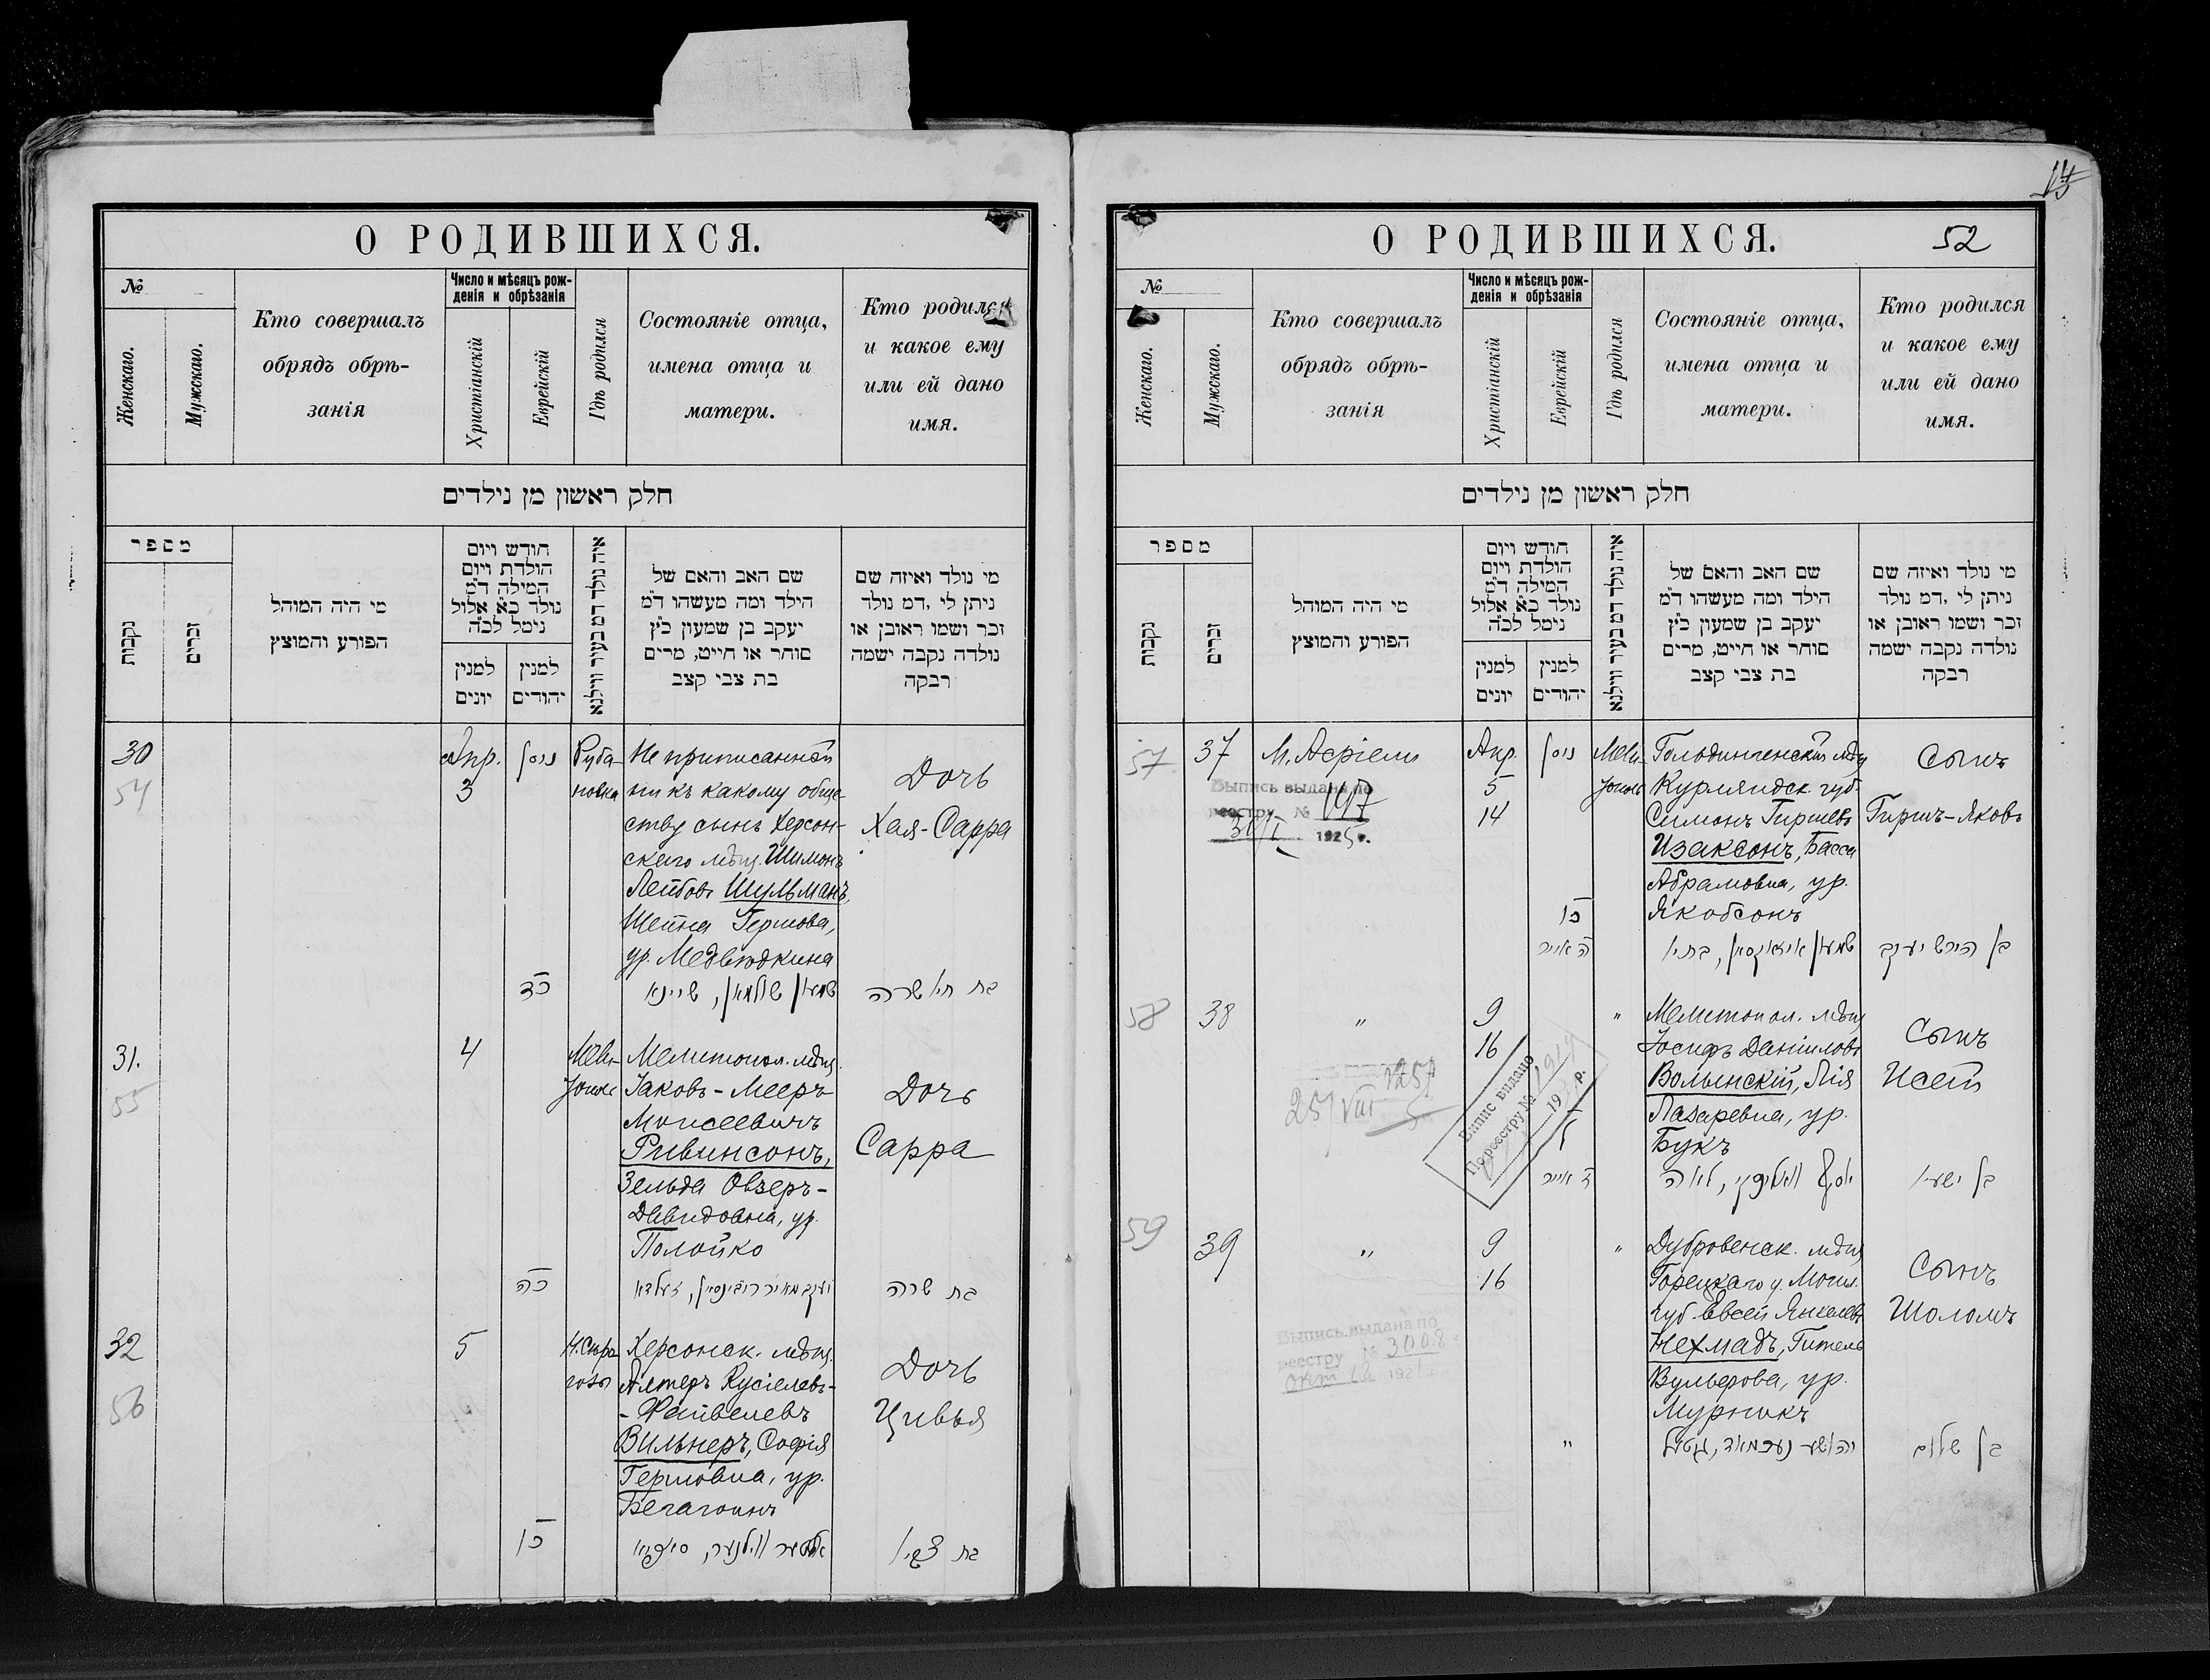 О РОДИВШИХСЯ.
№
Женскаго.
Мужскаго.
Кто совершалъ
обрядъ обрѣ-
занія
Число и мѣсяцъ рож-
денія и обрѣзанія
Христіанскій
Еврейскій
Гдѣ родился
Состояніе отца,
имена отца и
матери.
Кто родился
и какое ему
или ей дано
имя.
חלק ראשון מן נילדים
מספר
נקבות
זכרים
מי היה המוהל
הפורע והמוצץ
חודש ויום
הולדת ויום
המילה ד״מ
נולד כ״א אלול
נימל לכ״ה
למנין
יונים
למנין
יהודים
איה נולד דמ בעיר ווילנא
שם האב והאם של
הילד ומה מעשהו ד״מ
יעקב בן שמעון כ״ץ
סוחר או חייט, מרים
בת צבי קצב
מי נולד ואיזה שם
ניתן לי ,דמ נולד
זכר ושמו ראובן או
נולדה נקבה ישמה
רבקה
30
54
Апр.
3
ניסן
כד
Руба-
новка
Не приписанной
ни къ какому обще-
ству сынъ Херсон-
скаго мѣщ. Шимонъ
Лейбовъ Шульманъ,
Шейна Гершова,
ур. Медвѣдкина
שמעון שולמאן, שיינא
Дочь
Хая-Сарра
בת חיה שרה
31.
55
4
כה
Мели-
Мелитопол. мѣщ.
Іаковъ-Мееръ
Моисеевичъ
Ривинсонъ,
Зельда Овзеръ-
Давидовна, ур.
Полойко
יעקב מאיר ריבינסאן, זעלדא
Дочь
Сарра
בת שרה
32
56
5
כו
Н. Сѣро-
гозы
Херсонск. мѣщ.
Алтеръ Кусіелевъ-
-Файвелевъ
Вильнеръ, Софія
Гершовна, ур.
אלטער ווילנער, סאפיא
Дочь
Цивья
בת צביה
О РОДИВШИХСЯ.
52
№
Женскаго.
Мужскаго.
Кто совершалъ
обрядъ обрѣ-
занія
Число и мѣсяцъ рож-
денія и обрѣзанія
Христіанскій
Еврейскій
Гдѣ родился
Состояніе отца,
имена отца и
матери.
Кто родился
и какое ему
или ей дано
имя.
חלק ראשון מן נילדים
מספר
נקבות
זכרים
מי היה המוהל
הפורע והמוצץ
חודש ויום
הולדת ויום
המילה ד״מ
נולד כ״א אלול
נימל לכ״ה
למנין
יונים
למנין
יהודים
איה נולד דמ בעיר ווילנא
שם האב והאם של
הילד ומה מעשהו ד״מ
יעקב בן שמעון כ״ץ
סוחר או חייט, מרים
בת צבי קצב
מי נולד ואיזה שם
ניתן לי ,דמ נולד
זכר ושמו ראובן או
נולדה נקבה ישמה
רבקה
57
37
М. Асріели
Выпись выдана по
реестру №
1925 г.
Апр.
5
14
ניסן
כו
ה אייר
Мели-
Гольдингенскій мѣщ
Курляндск. губ.
Симонъ Гиршевъ
Изаксонъ, Басса
Абрамовна, ур.
Якобсонъ
שמעון איזאקסאן, בתיה
Сынъ
Гиршъ-Яковъ
בן הירש יעקב
58
38
"
25/VIII
Випис видано
По реєстру №
19 р.
9
16
ד אייר
"
Мелитопол. мѣщ
Іосифъ Даніиловъ
Волынскій, Лія
Лазаревна, ур.
Букъ
יוסף וואלינסקי, לאה
Сынъ
Исай
בן ישעיה
59
39
"
Выпись выдана по
реестру № 3008
окт 18 192
9
16
"
"
Дубровенск. мѣщ
Горецкаго у. Могил.
губ. Евсей Янкелевъ
Нехмадъ, Гитель
Вульфова, ур.
Мурникъ
יהושע נעכמאד, גיטל
Сынъ
Шоломъ
בן שלום